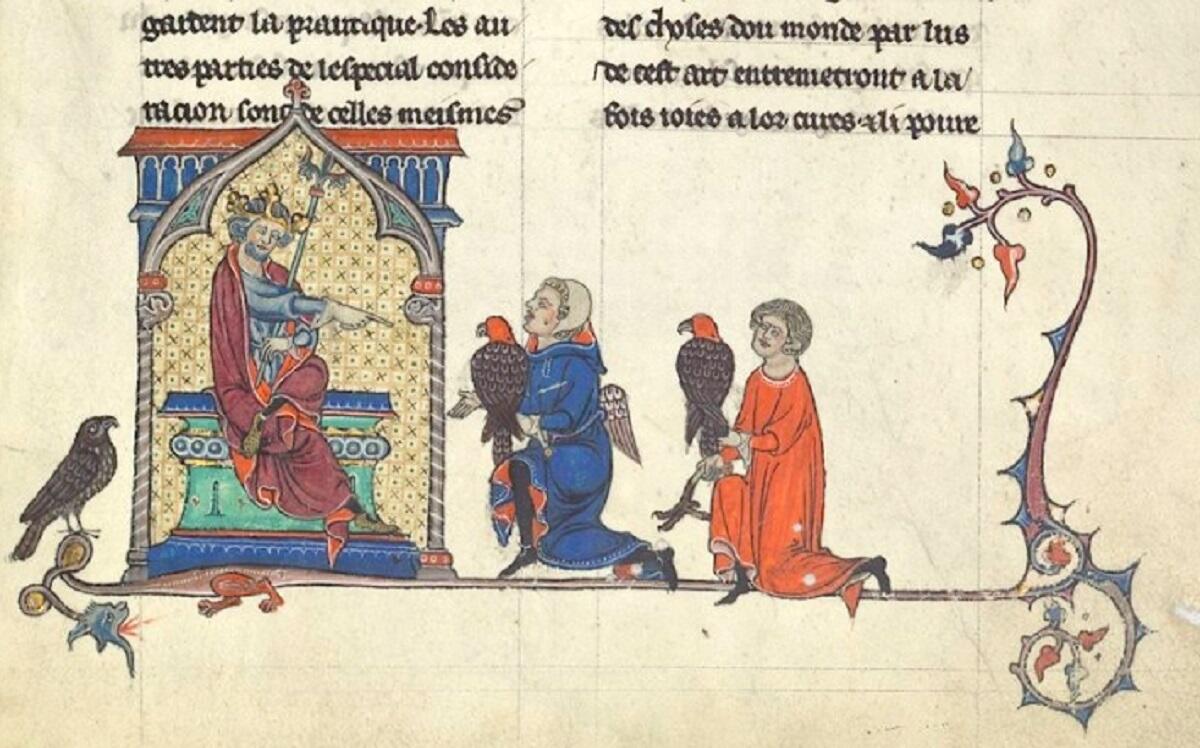 gardent la prautique. Les au
tres parties de lespecial conside
racion sont de celles meismes
des choses dou monde par lus
de cest art entremetront a la
fois ioies a lor cures. & li poure